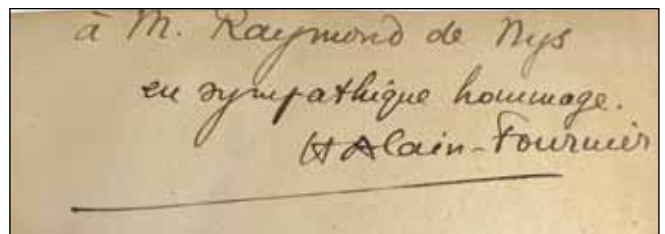 à M. Raymond de Nys
en sympathique hommage.
H Alain-Fournier